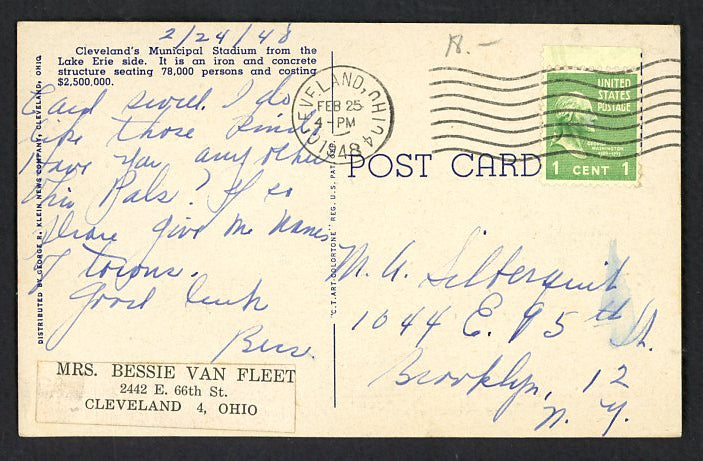 2/24/48
Cleveland's Municipal Stadium from the
Lake Erie side. It is an iron and concrete
structure seating 78,000 persons and costing
$2,500,000.
Card swell. I do
like those kind.
Have you any other
Ohio Pals? If so
Please give me names
of towns.
Good luck
Bess.
MRS. BESSIE VAN FLEET
2442 E. 66th St.
CLEVELAND 4, OHIO
DISTRIBUTED BY GEORGE R. KLEIN NEWS COMPANY, CLEVELAND, OHIO
"C.T. ART-COLORTONE" REG. U.S. PAT. OFF.
CLEVELAND, OHIO 4
FEB 25
4-PM
1948
POST CARD
UNITED
STATES
POSTAGE
GEORGE
WASHINGTON
1789-1797
1 CENT 1
M. A. Silberquit
1044 E. 95th St.
Brooklyn, 12
N. Y.